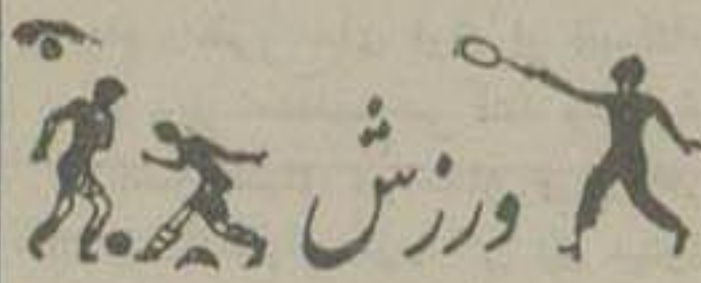 ورزش